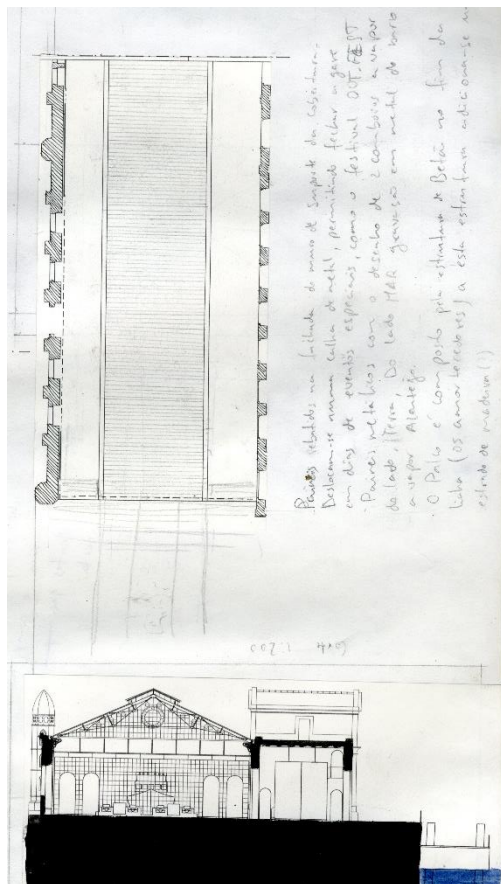 Painéis rebatidos na fachada do muro de suporte da cobertura.
Deslocam-se numa calha de metal, permitindo fechar a gare
em dias de eventos especiais, como o festival OUT.FEST
· Paineis metálicos com o desenho de 2 comboios a vapor
do lado Terra, Do lado MAR gravação em metal do barco
a vapor Alentejo.
· O Palco é composto pela estrutura de Betão no fim da
linha (os amortecedores) a esta estrutura adiciona-se um
estrado de madeira (?)
1:200